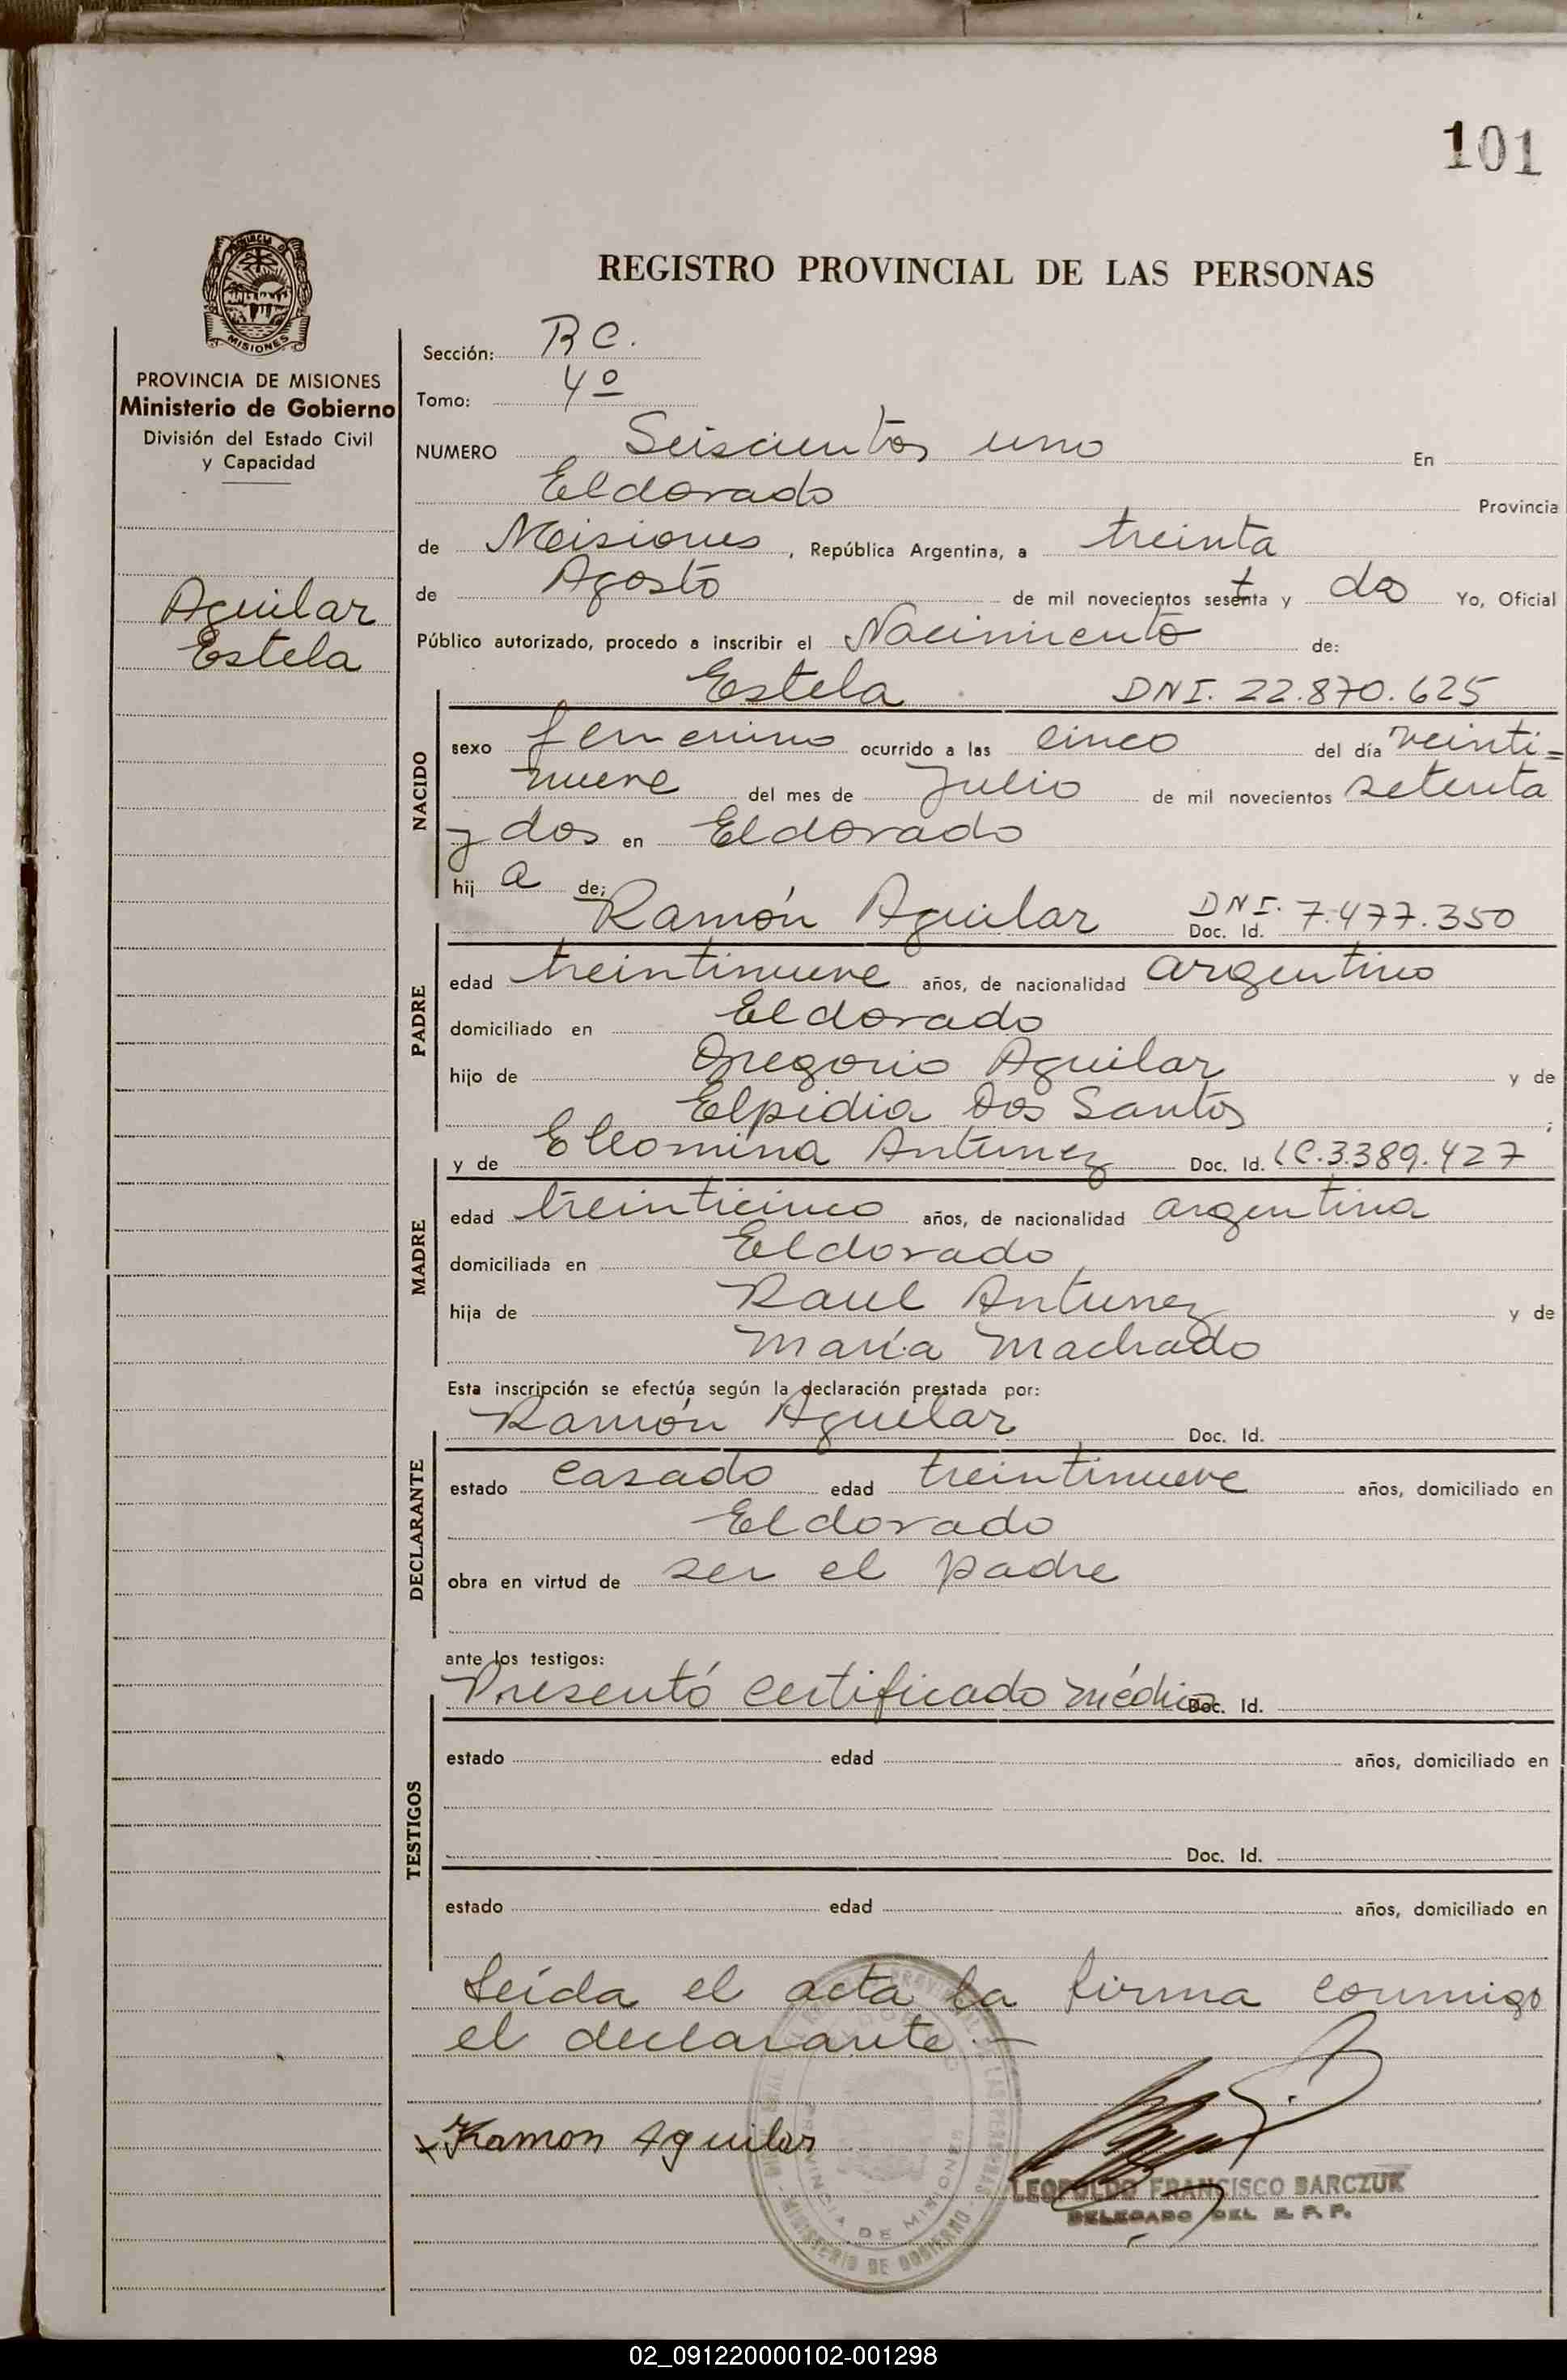 101
REGISTRO PROVINCIAL DE LAS PERSONAS
PROVINCIA DE
MISIONES
PROVINCIA DE MISIONES
Ministerio de Gobierno
División del Estado Civil
y Capacidad
Aguilar
Estela
Sección: R C.
Tomo: 4º
NUMERO Seiscientos uno En
Eldorado Provincia
de Misiones, República Argentina, a treinta
de Agosto de mil novecientos sesenta y dos Yo, Oficial
Público autorizado, procedo a inscribir el Nacimiento de:
Estela DNI. 22.870.625
NACIDO
sexo femenino ocurrido a las cinco del día veinti=
nueve del mes de Julio de mil novecientos setenta
y dos en Eldorado
hij a de:
Ramón Aguilar DNI. Doc. Id. 7.477.350
PADRE
edad treintinueve años, de nacionalidad argentino
domiciliado en Eldorado
hijo de Gregorio Aguilar y de
Elpidia Dos Santos ;
y de Ellomina Antunez Doc. Id. LC.3.389.427
MADRE
edad treinticinco años, de nacionalidad argentina
domiciliada en Eldorado
hija de Raul Antunez y de
María Machado
Esta inscripción se efectúa según la declaración prestada por:
Ramón Aguilar Doc. Id.
DECLARANTE
estado casado edad treintinueve años, domiciliado en
Eldorado
obra en virtud de ser el padre
ante los testigos:
Presentó certificado médico Doc. Id.
TESTIGOS
estado edad años, domiciliado en
Doc. Id.
estado edad años, domiciliado en
Leída el acta la firma conmigo
el declarante.-
Ramon Aguilar
PROVINCIA DE MISIONES
MINISTERIO DE GOBIERNO
LEOPOLDO FRANCISCO BARCZUK
DELEGADO DEL R. P. P.
02_091220000102-001298